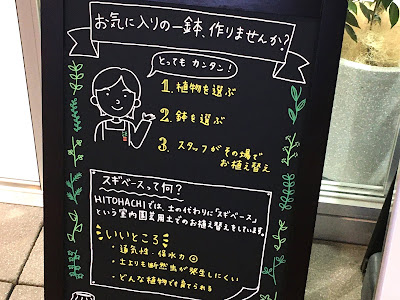 お気に入りの一鉢、作りませんか?
とっても カンタン!
1. 植物を選ぶ
2. 鉢を選ぶ
3. スタッフがその場で
お植え替え
スギベースって何?
HITOHACHIでは、土の代わりに「スギベース」
という室内園芸用土でのお植え替えをしています。
いいところ
・通気性・保水力◎
・土よりも断然虫が発生しにくい
・どんな植物でも育てられる